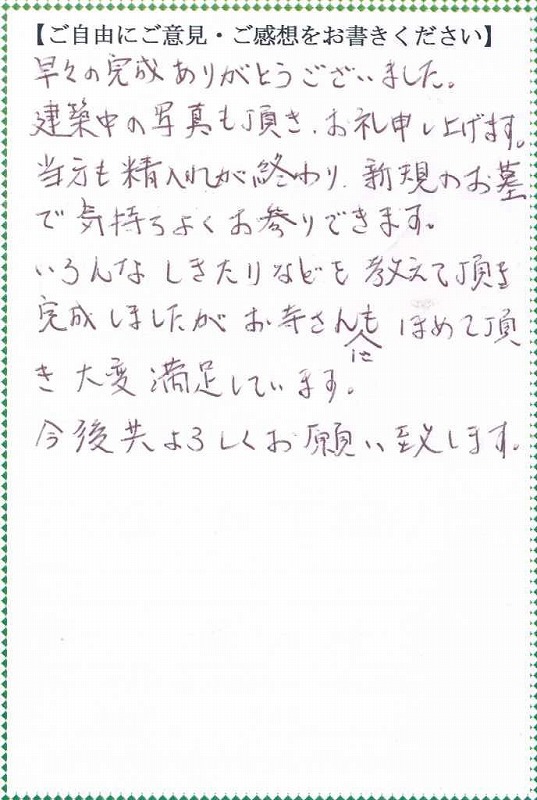 【ご自由にご意見・ご感想をお書きください】
早々の完成ありがとうございました。
建築中の写真も頂き、お礼申し上げます。
当方も精入れが終わり、新規のお墓
で気持ちよくお参りできます。
いろんなしきたりなどを教えて頂き
完成しましたがお寺さんにもほめて頂
き大変満足しています。
今後共よろしくお願い致します。